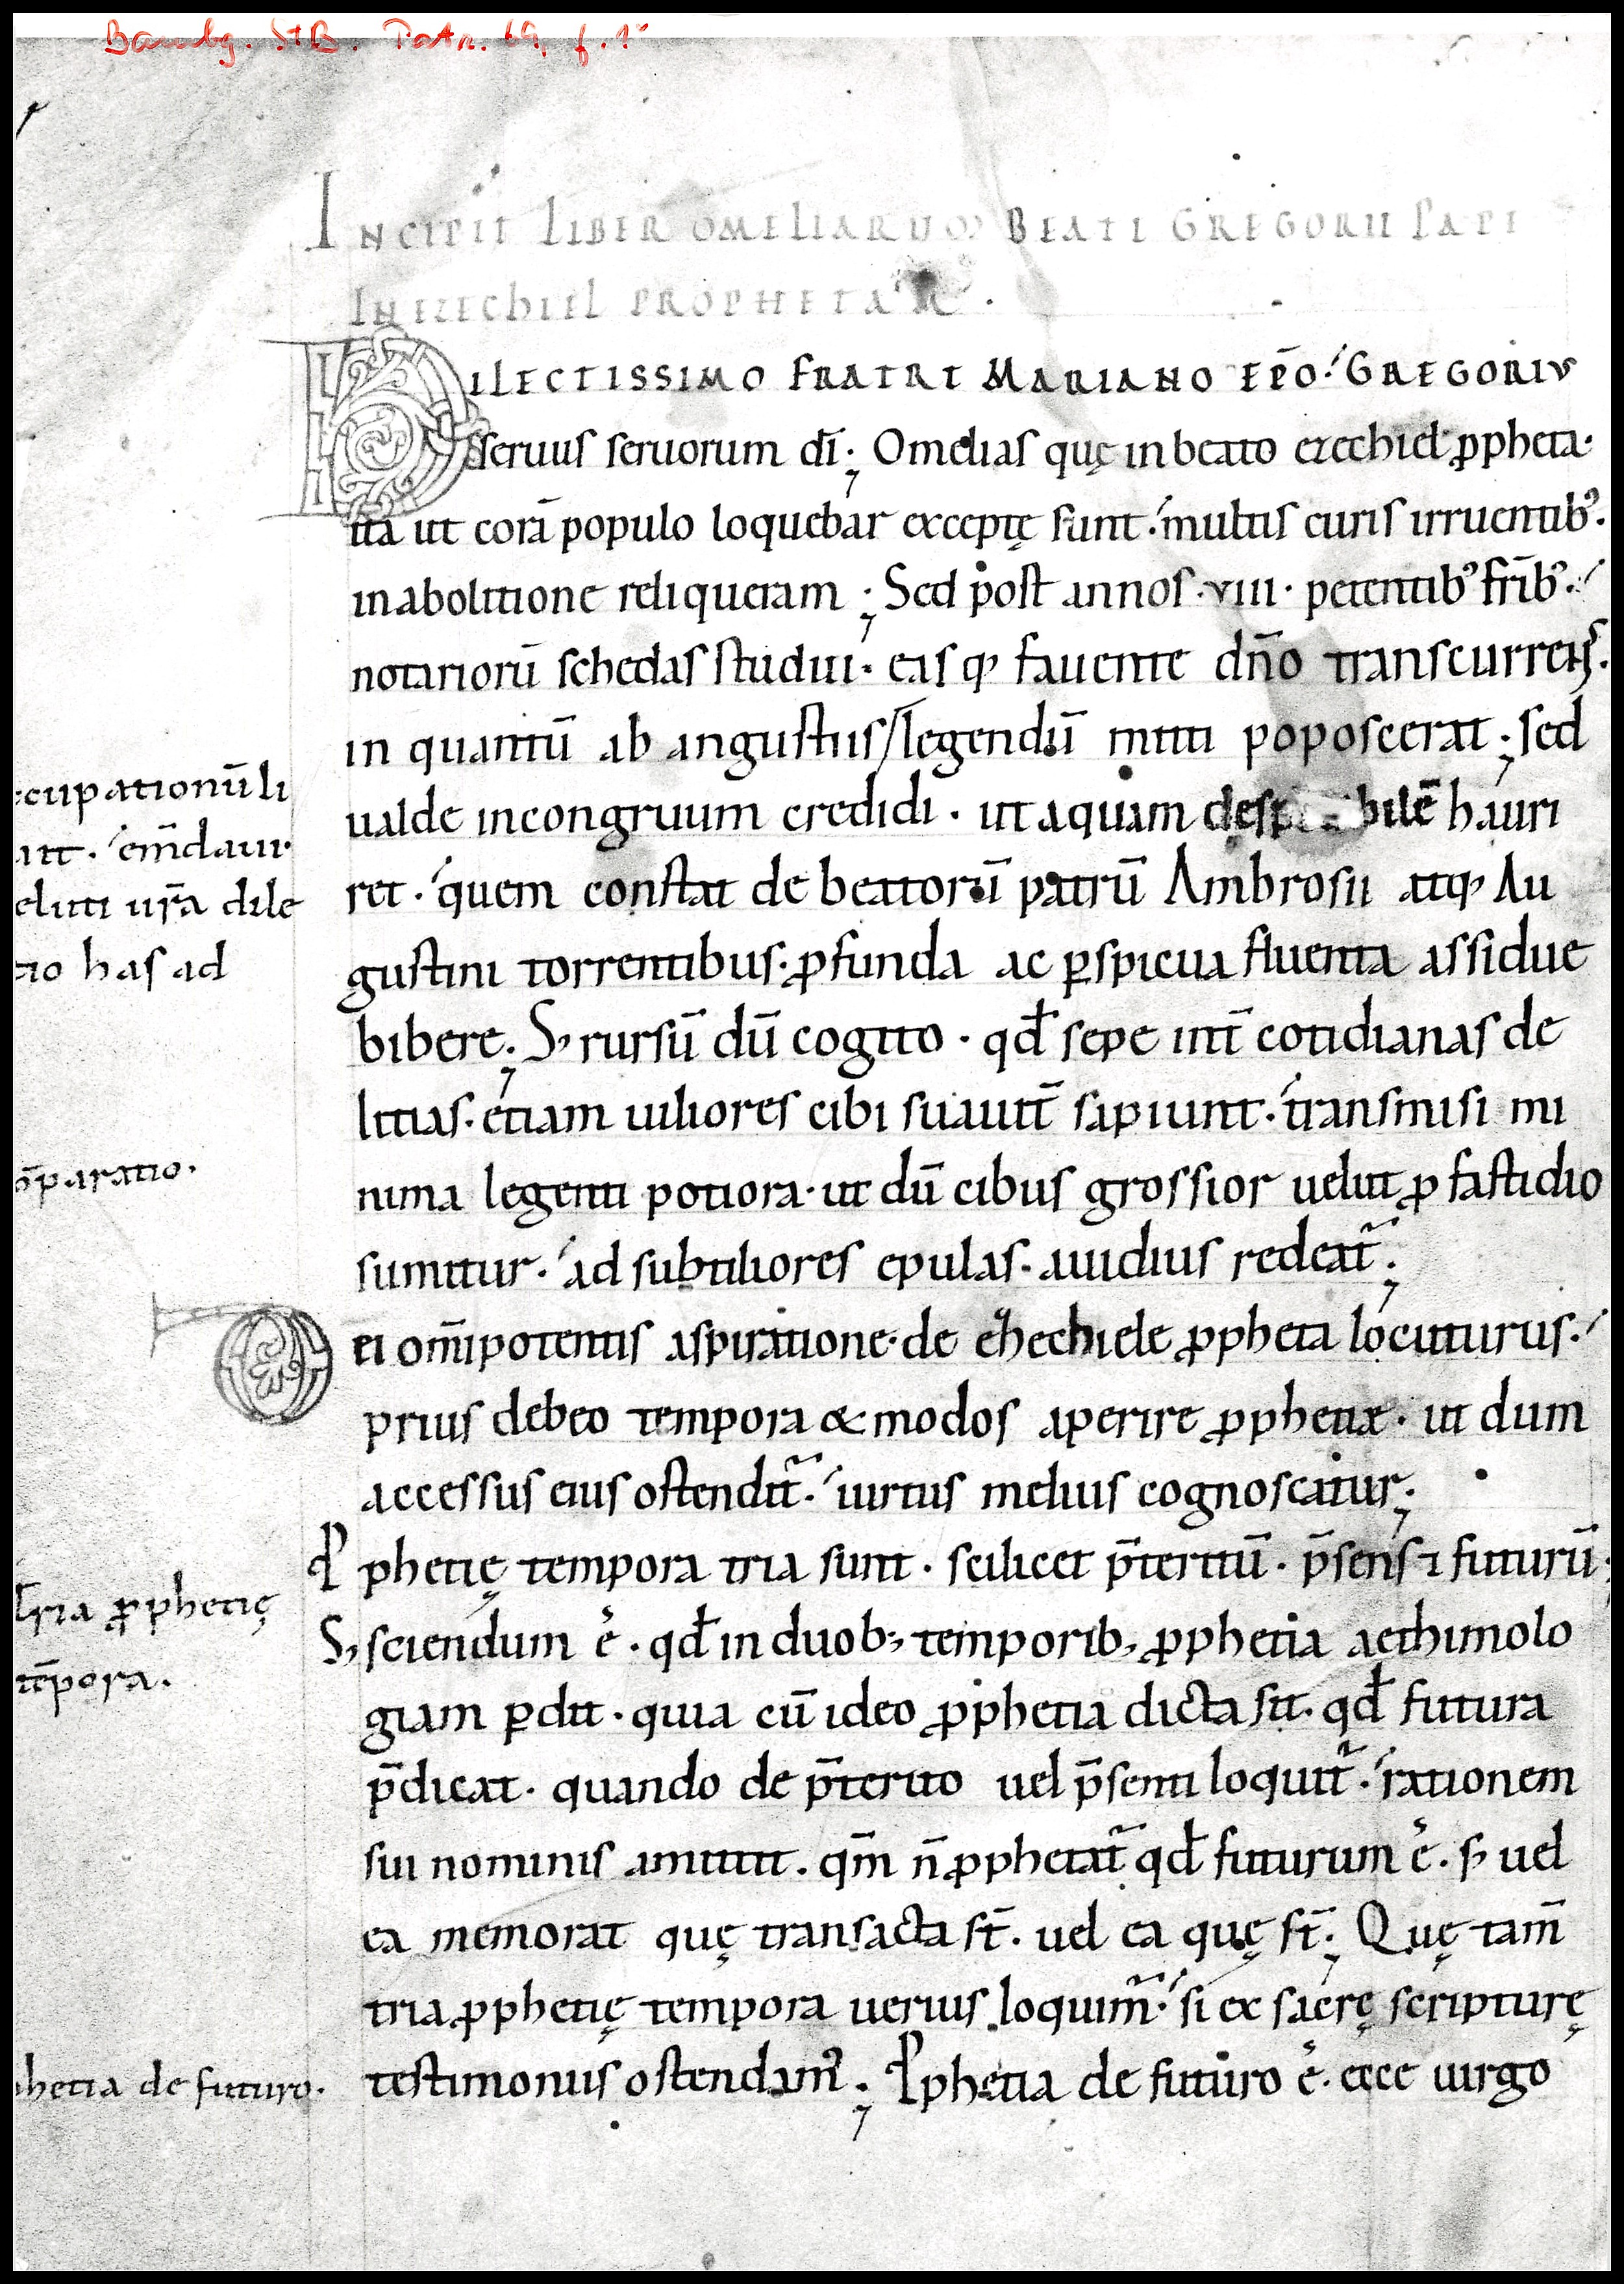 Bambg. StB. Patr. 69, f. 1v
INCIPIT LIBER OMELIARUM BEATI GREGORII PAPE
IN EZECHIEL PROPHETAM.
DILECTISSIMO FRATRI MARIANO EPŌ. GREGORIVS
seruus seruorum dī; Omelias quę in beato ezechiel ꝓpheta.
ita ut corā populo loquebar exceptę sunt. multis curis irruentibꝰ.
in abolitione reliqueram; Sed post annos .viii. petentibꝰ fr̄ibꝰ.
notariorū schedas studui. eas qꝫ fauente dn̄o transcurrens.
in quantū ab angustiis / legendū mitti poposcerat; sed
ualde incongruum credidi. ut aquam bilē hauri
ret. quem constat de beatorū patrū Ambrosii atqꝫ Au
gustini torrentibus. ꝓfunda ac ꝑspicua fluenta assidue
bibere; Sꝫ rursū dū cogito. qd̄ sepe int̄ cotidianas de
litias. etiam uiliores cibi suauit̄ sapiunt. transmisi mi
nima legenti potiora. ut dū cibus grossior uelut ꝓ fastidio
sumitur. ad subtiliores epulas. auidius redeat᷑;
Dei om̄ipotentis aspiratione. de ehechiele ꝓpheta locuturus.
prius debeo tempora & modos aperire ꝓphetiæ. ut dum
accessus eius ostendit᷑. uirtus melius cognoscatur;
Ꝓphetię tempora tria sunt. scilicet p̄teritū. p̄sens ⁊ futurū;
Sꝫ sciendum ē. qd̄ in duobꝫ temporibꝫ ꝓphetia aethimolo
giam ꝑdit. quia cū ideo ꝓphetia dicta sit. qd̄ futura
p̄dicat. quando de p̄terito uel p̄senti loquit᷑. rationem
sui nominis amittit. qm̄ n̄ ꝓphetat᷑ qd̄ futurum ē. sꝫ uel
ea memorat quę transacta st̄. uel ea quę st̄; Quę tam̄
tria ꝓphetię tempora uerius loquim᷑. si ex sacrę scripturę
testimoniis ostendamꝰ; Ꝓphetia de futuro ē. ecce uirgo
cupationū li
att. em̄daui.
eluti ur̄a dile
tio has ad
ōparatio.
Tria ꝓphetię
tēpora.
phetia de futuro.